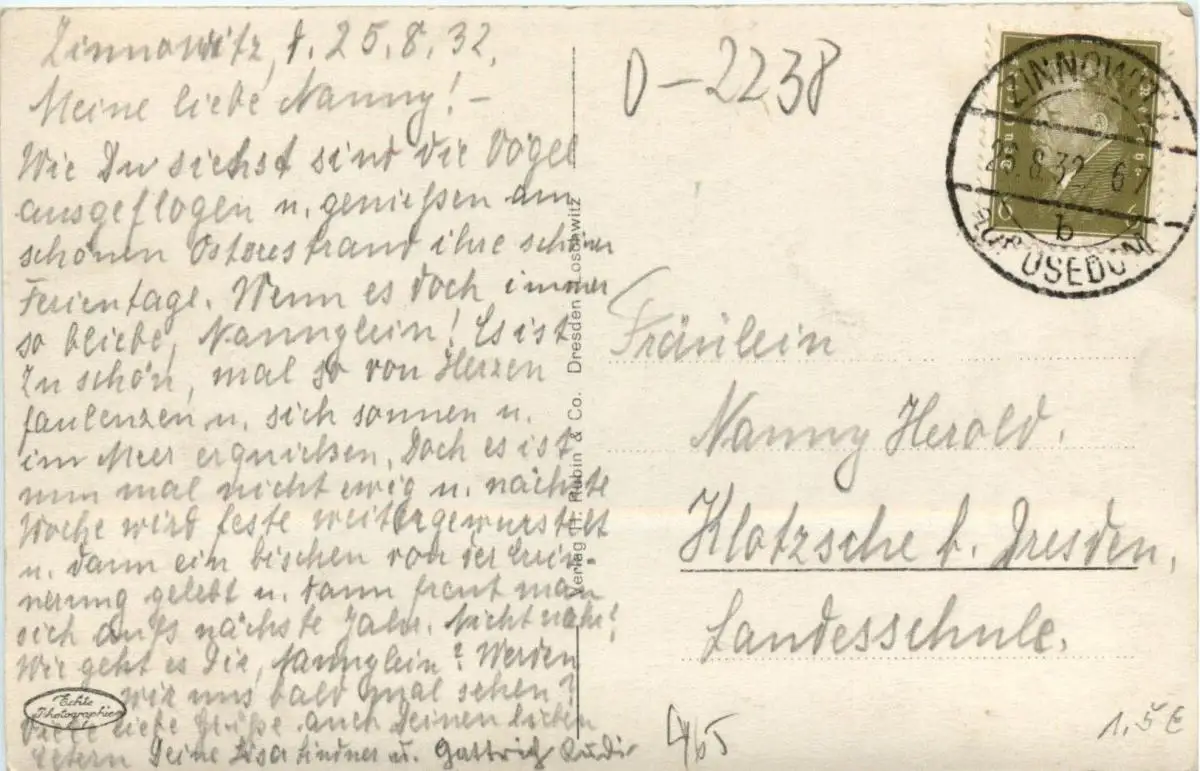 Zinnowitz, d. 25.8.32.
Meine liebe Nanny! –
Wie Du siehst sind die Vögel
ausgeflogen u. genießen am
schönen Ostseestrand ihre schönen
Ferientage. Wenn es doch immer
so bliebe, Nannylein! Es ist
zu schön, mal so von Herzen
faulenzen u. sich sonnen u.
im Meer erquicken. Doch es ist
nun mal nicht ewig u. nächste
Woche wird feste weitergewurstelt
u. dann ein bischen von der Erin-
nerung gelebt u. dann freut man
sich aufs nächste Jahr. Nicht wahr!
Wie geht es Dir, Nannylein? Werden
wir uns bald mal sehen?
Viele liebe Grüße auch Deinen lieben
Eltern Deine Lisa Lindner u.
Echte
Photographie
Verlag H. Rubin & Co. Dresden-Loschwitz
D-2238
ZINNOWITZ
32 6-7
b
AUF USEDOM
6
Fräulein
Nanny Herold.
Klotzsche b. Dresden,
Landesschule.
1.5 €